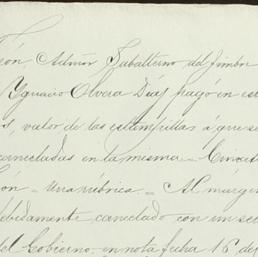 Admõr Subalterno del Timbre
Ygnacio Olvera Días pagó en es
valor de las estampillas á que se
canceladas en la misma = Ciu
ón = Una rúbrica = Al márge
debidamente cancelado con un se
del Gobierno en nota fecha 16 de